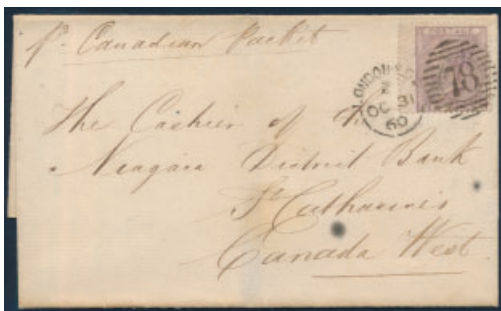 pr Canadian Packet
POSTAGE
LONDON
Z
OC 31
60
78
The Cashier of the
Niagara District Bank
St Catharines
Canada West